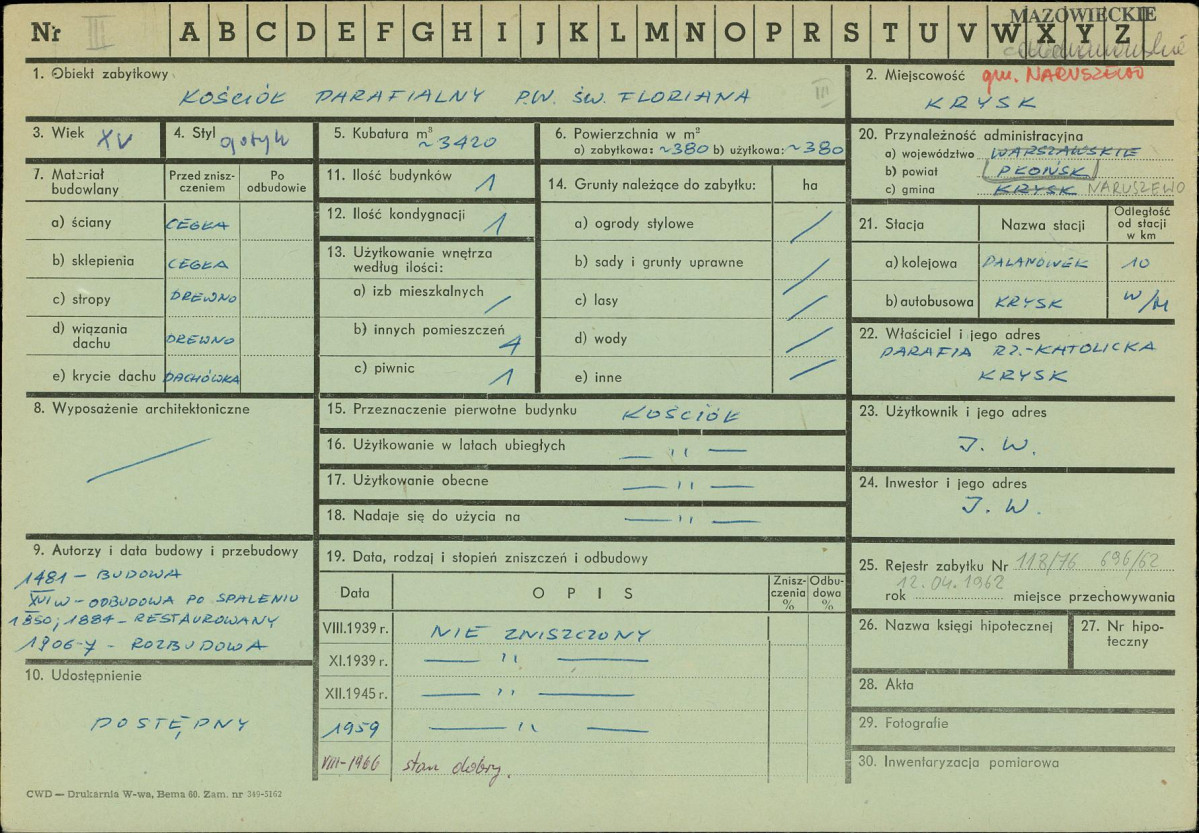 Nr III A B C D E F G H I J K L M N O P R S T U V W X Y Z
MAZOWIECKIE
1. Obiekt zabytkowy
KOŚCIÓŁ PARAFIALNY P.W. ŚW. FLORIANA III
2. Miejscowość gm. NARUSZEWO
KRYSK
3. Wiek XV
4. Styl gotyk
5. Kubatura m³ ~3420
6. Powierzchnia w m²
a) zabytkowa: ~380 b) użytkowa: ~380
20. Przynależność administracyjna
a) województwo WARSZAWSKIE
b) powiat PŁOŃSK
c) gmina KRYSK NARUSZEWO
7. Materiał budowlany
Przed zniszczeniem
Po odbudowie
a) ściany CEGŁA
b) sklepienia CEGŁA
c) stropy DREWNO
d) wiązania dachu DREWNO
e) krycie dachu DACHÓWKA
11. Ilość budynków 1
12. Ilość kondygnacji 1
13. Użytkowanie wnętrza według ilości:
a) izb mieszkalnych /
b) innych pomieszczeń 4
c) piwnic 1
14. Grunty należące do zabytku: ha
a) ogrody stylowe /
b) sady i grunty uprawne /
c) lasy /
d) wody /
e) inne /
21. Stacja Nazwa stacji Odległość od stacji w km
a) kolejowa DALANÓWEK 10
b) autobusowa KRYSK W/M
22. Właściciel i jego adres
PARAFIA RZ.-KATOLICKA
KRYSK
8. Wyposażenie architektoniczne
/
15. Przeznaczenie pierwotne budynku KOŚCIÓŁ
16. Użytkowanie w latach ubiegłych — " —
17. Użytkowanie obecne — " —
18. Nadaje się do użycia na — " —
23. Użytkownik i jego adres
J. W.
24. Inwestor i jego adres
J. W.
9. Autorzy i data budowy i przebudowy
1481 – BUDOWA
XVI W – ODBUDOWA PO SPALENIU
1850; 1884 – RESTAUROWANY
1906-7 – ROZBUDOWA
10. Udostępnienie
DOSTĘPNY
19. Data, rodzaj i stopień zniszczeń i odbudowy
Data OPIS Zniszczenia % Odbudowa %
VIII.1939 r. NIE ZNISZCZONY
XI.1939 r. — " —
XII.1945 r. — " —
1959 — " —
VIII-1966 stan dobry.
25. Rejestr zabytku Nr 118/76 696/62
12.04.1962
rok miejsce przechowywania
26. Nazwa księgi hipotecznej
27. Nr hipoteczny
28. Akta
29. Fotografie
30. Inwentaryzacja pomiarowa
CWD — Drukarnia W-wa, Bema 60. Zam. nr 389-5162